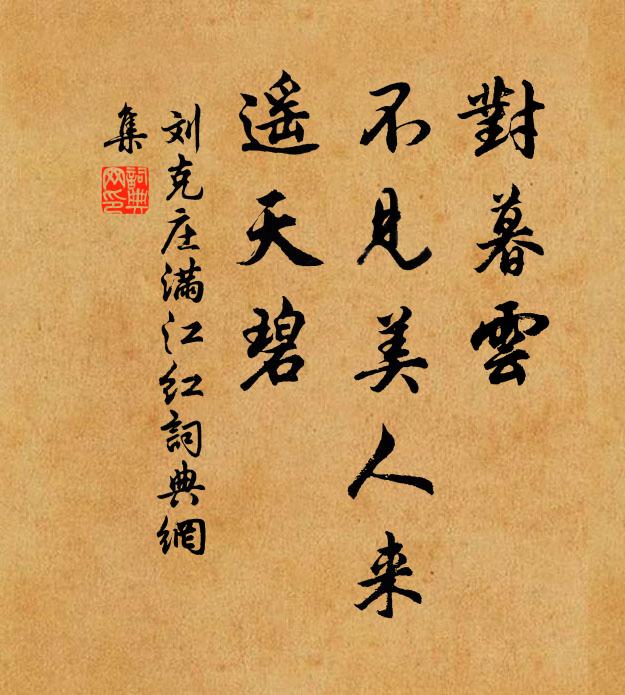 對暮雲
不見美人来
遥天碧
刘克庄满江红詞典網
集
詞典
网印